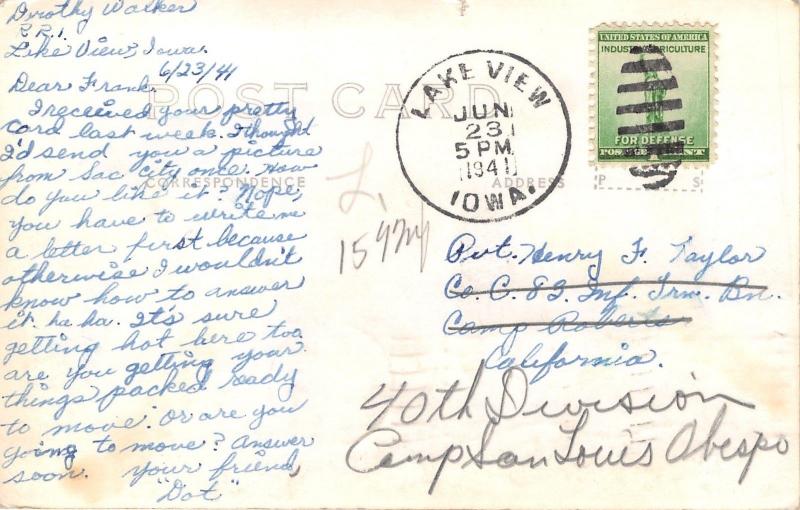 Dorothy Walker
R.R.1.
Lake View, Iowa.
6/23/41
Dear Frank,
I received your pretty
card last week. I thought
I'd send you a picture
from Sac City once. How
do you like it? Nope,
you have to write me
a letter first because
otherwise I wouldn't
know how to answer
it. ha ha. It's sure
getting hot here too
are you getting your
things packed ready
to move. Or are you
going to move? Answer
soon. Your friend,
"Dot"
POST CARD
CORRESPONDENCE
ADDRESS
P S
LAKE VIEW
JUN
23
5 PM
1941
IOWA.
UNITED STATES OF AMERICA
INDUSTRY AGRICULTURE
FOR DEFENSE
L.
Pvt. Henry F. Taylor
Co. C. 83. Inf. Trn. Bn.
Camp Roberts
California.
40th Division
Camp San Louis Obespo